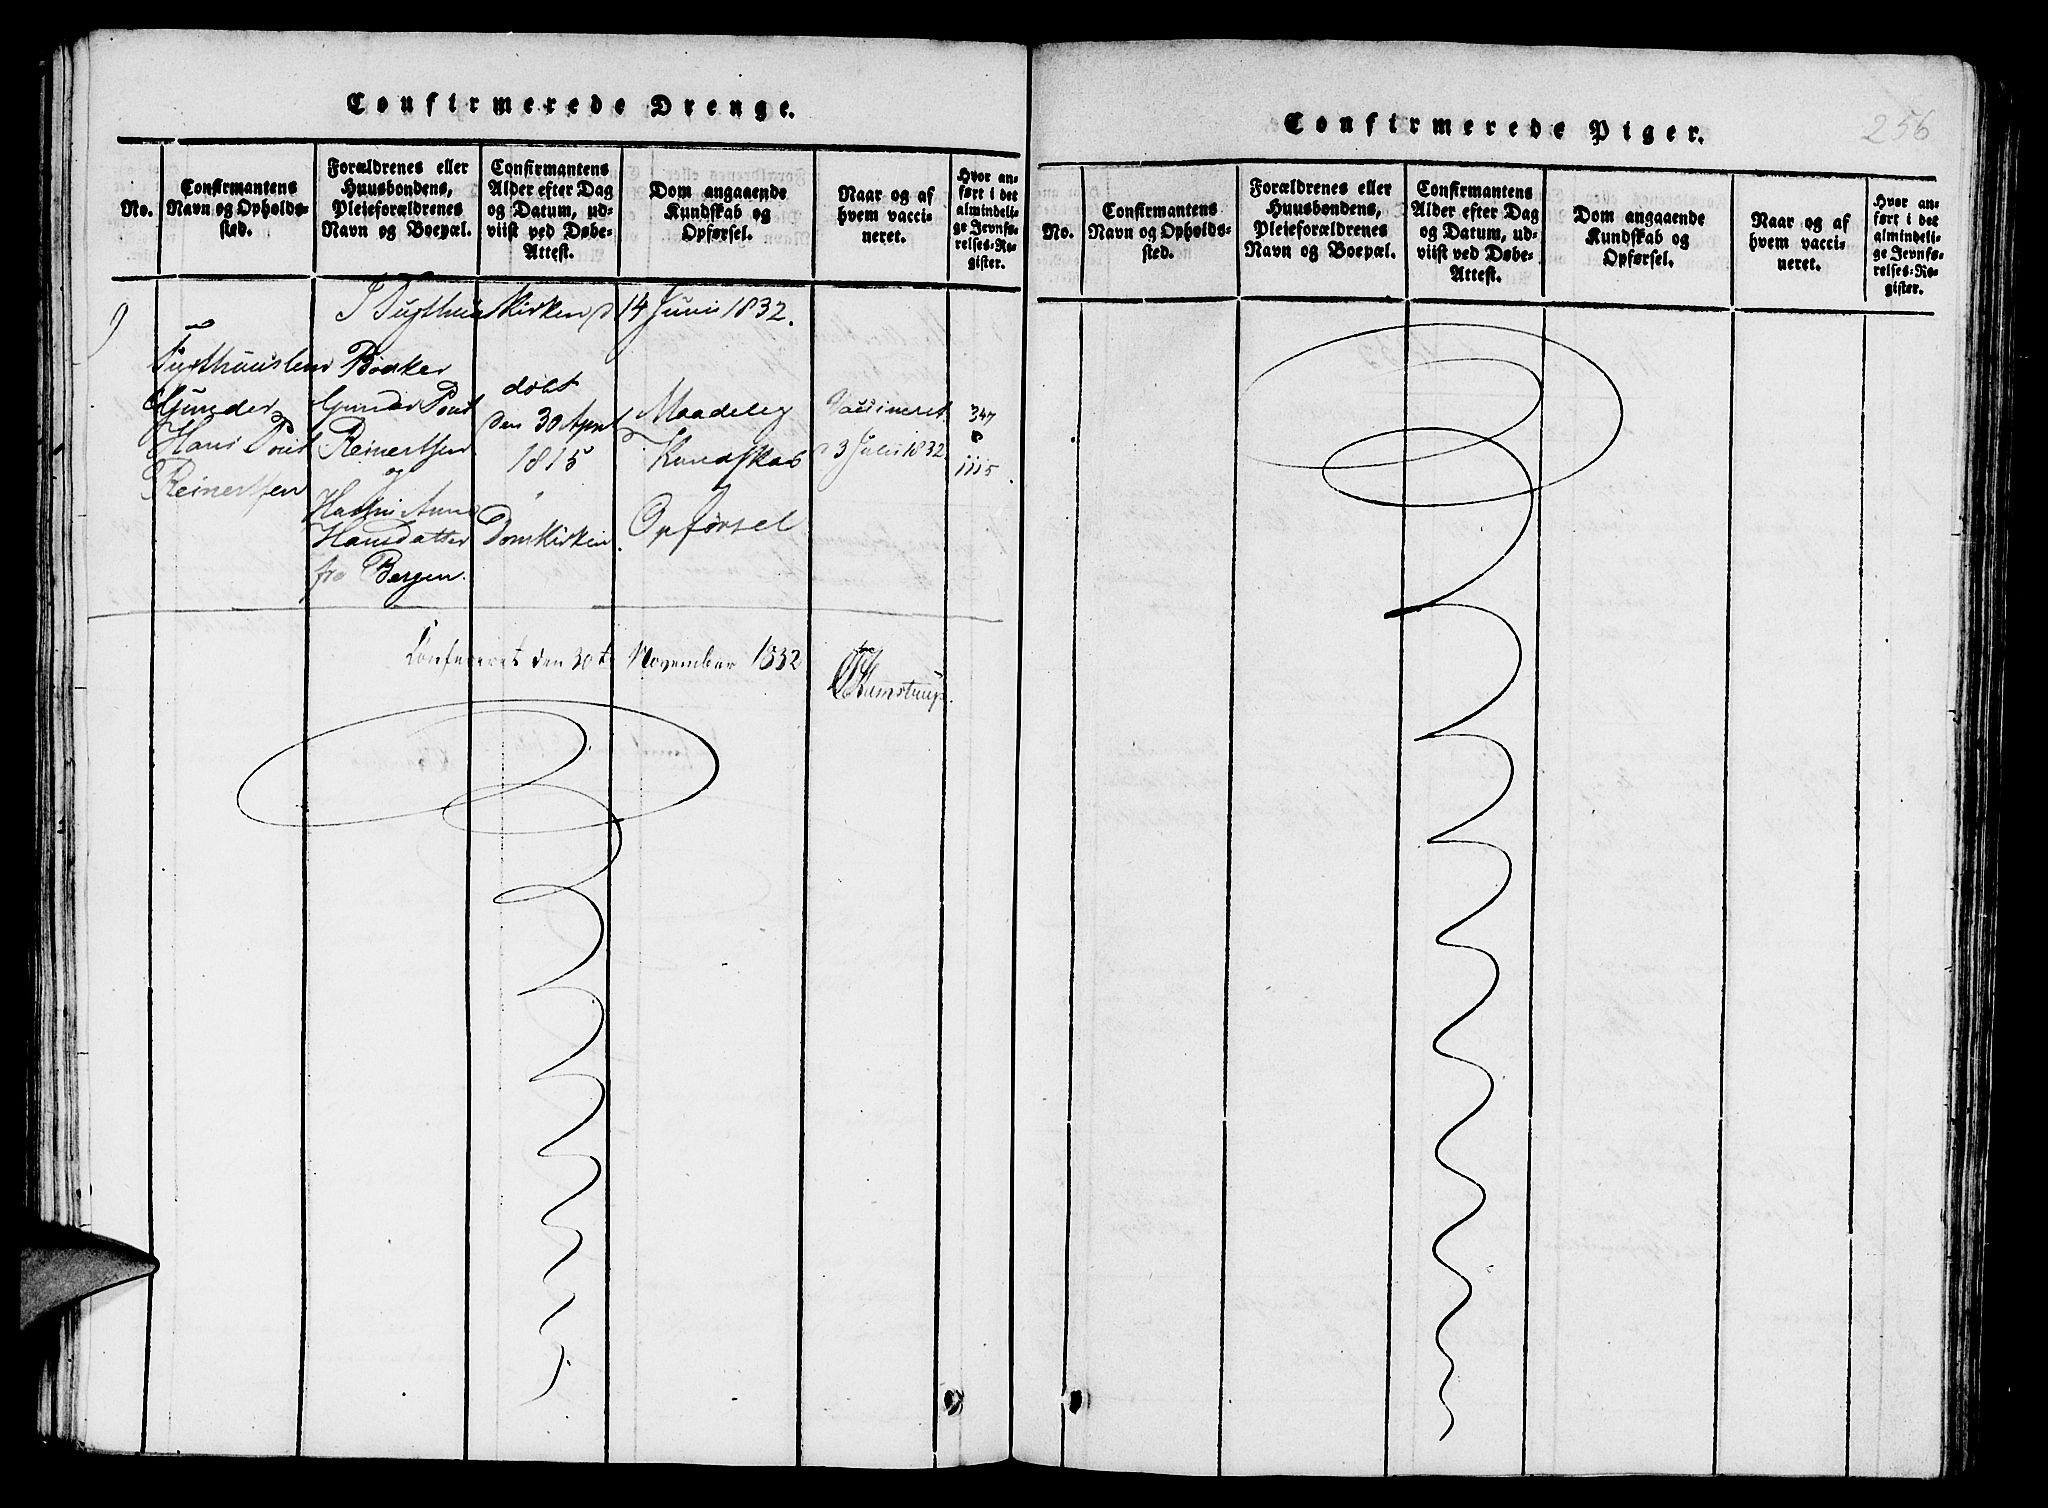 Confirmerede Drenge.
No.
Confirmantens
Navn og Opholds-
sted.
Forældrenes eller
Huusbondens,
Pleieforældrenes
Navn og Boepæl.
Confirmantens
Alder efter Dag
og Datum, ud-
viist ved Døbe-
Attest.
Dom angaaende
Kundskab og
Opførsel.
Naar og af
hvem vacci-
neret.
Hvor an-
ført i det
almindeli-
ge Jevnfø-
relses-Re-
gister.
I Tugthuus Kirken d 14 Juni 1832.
Gunder
Hans Pout
Reinertsen
Bødker
Gunder Pout
Reinertsen
og
Hansdatter
fra Bergen.
døbt
den 30 Apr
1815
Domkirken.
Maadelig
Kundskab
Opførsel
Vaccineret
d 3 Julii 1832.
347
1115
den 30t November 1832
Confirmerede Piger.
256
No.
Confirmantens
Navn og Opholds-
sted.
Forældrenes eller
Huusbondens,
Pleieforældrenes
Navn og Boepæl.
Confirmantens
Alder efter Dag
og Datum, ud-
viist ved Døbe-
Attest.
Dom angaaende
Kundskab og
Opførsel.
Naar og af
hvem vacci-
neret.
Hvor an-
ført i det
almindeli-
ge Jevnfø-
relses-Re-
gister.